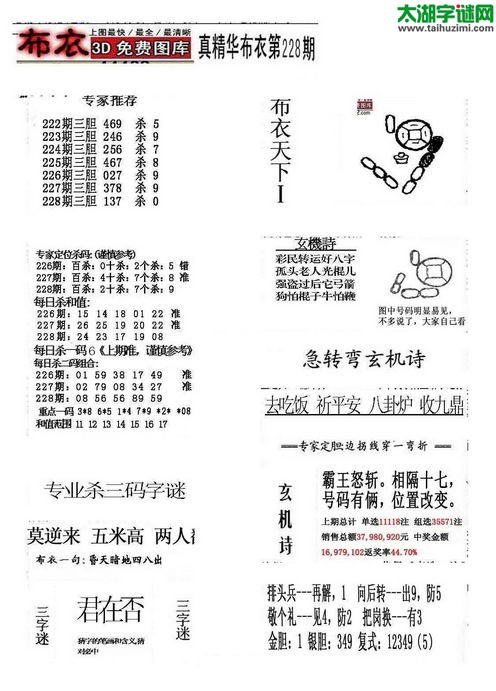 太湖字谜网
www.taihuzimi.com
布衣
上图最快/最全/最清晰
3D 免费图库
真精华布衣第228期
专家推荐
222期三胆 469 杀 5
223期三胆 246 杀 9
224期三胆 256 杀 7
225期三胆 467 杀 8
226期三胆 027 杀 9
227期三胆 378 杀 9
228期三胆 137 杀 0
布衣天下I
专家定位杀码:(谨慎参考)
226期：百杀：0十杀：2个杀：5 错
227期：百杀：4十杀：7个杀：8 准
228期：百杀：2十杀：7个杀：9
每日杀和值:
226期：15 14 18 01 22 准
227期：26 25 19 20 22 准
228期：24 23 17 19 08
每日杀一码6《上期准，谨慎参考》
每日杀二码组合:
226期：01 59 38 17 49 准
227期：02 79 08 34 27 准
228期：08 56 56 89 59
重点一码 3*8 6*5 1*4 7*9 *2* *08
和值范围 11 12 13 14 15 16 17
玄機詩
彩民转运好八字
孤头老人光棍儿
强盗过后它弓箭
狗怕棍子牛怕鞭
图中号码明显易见，
不多说了，大家自己看
急转弯玄机诗
去吃饭 祈平安 八卦炉 收九鼎
===专家定胆边拐线穿一弯折 ===
玄机诗
霸王怒斩。相隔十七，
号码有俩，位置改变。
上期总计 单选11118注 组选35571注
销售总额37,980,920元 中奖金额
16,979,102返奖率44.70%
专业杀三码字谜
莫逆来 五米高 两人
布衣一句:昏天暗地四八出
三字谜
君在否
猜字的笔画和含义,猜
对必中
三字谜
排头兵---再解，1 向后转---出9，防5
敬个礼---见4，防2 把岗换---有3
金胆：1 银胆：349 复式：12349（5）